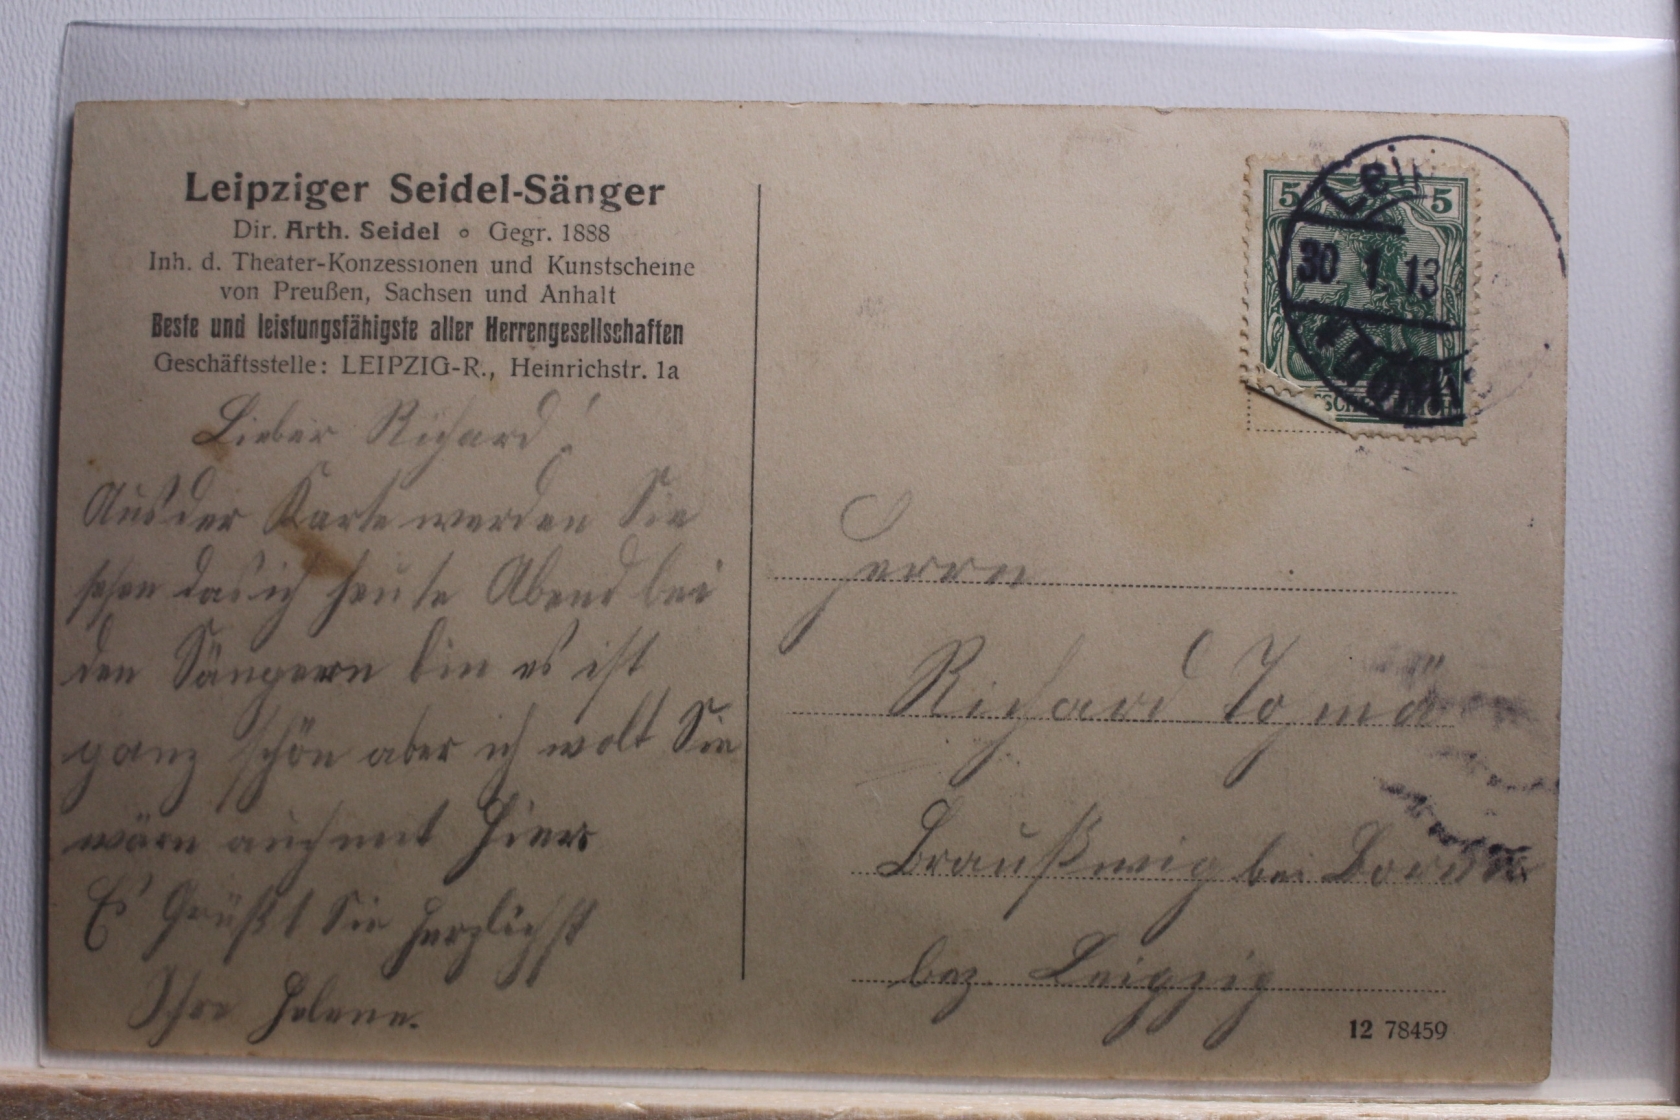 Leipziger Seidel-Sänger
Dir. Arth. Seidel ∘ Gegr. 1888
Inh. d. Theater-Konzessionen und Kunstscheine
von Preußen, Sachsen und Anhalt
Beste und leistungsfähigste aller Herrengesellschaften
Geschäftsstelle: LEIPZIG-R., Heinrichstr. 1a
Lieber Richard!
Aus der Karte werden Sie
sehen das ich heute Abend bei
den Sängern bin es ist
ganz schön aber ich wolt Sie
wärn auch mit hier
Es Grüßt Sie herzlichst
Ihre Helene.
5 5
30 1 13
Herrn
Richard
Braußwig bei
bez. Leipzig
12 78459